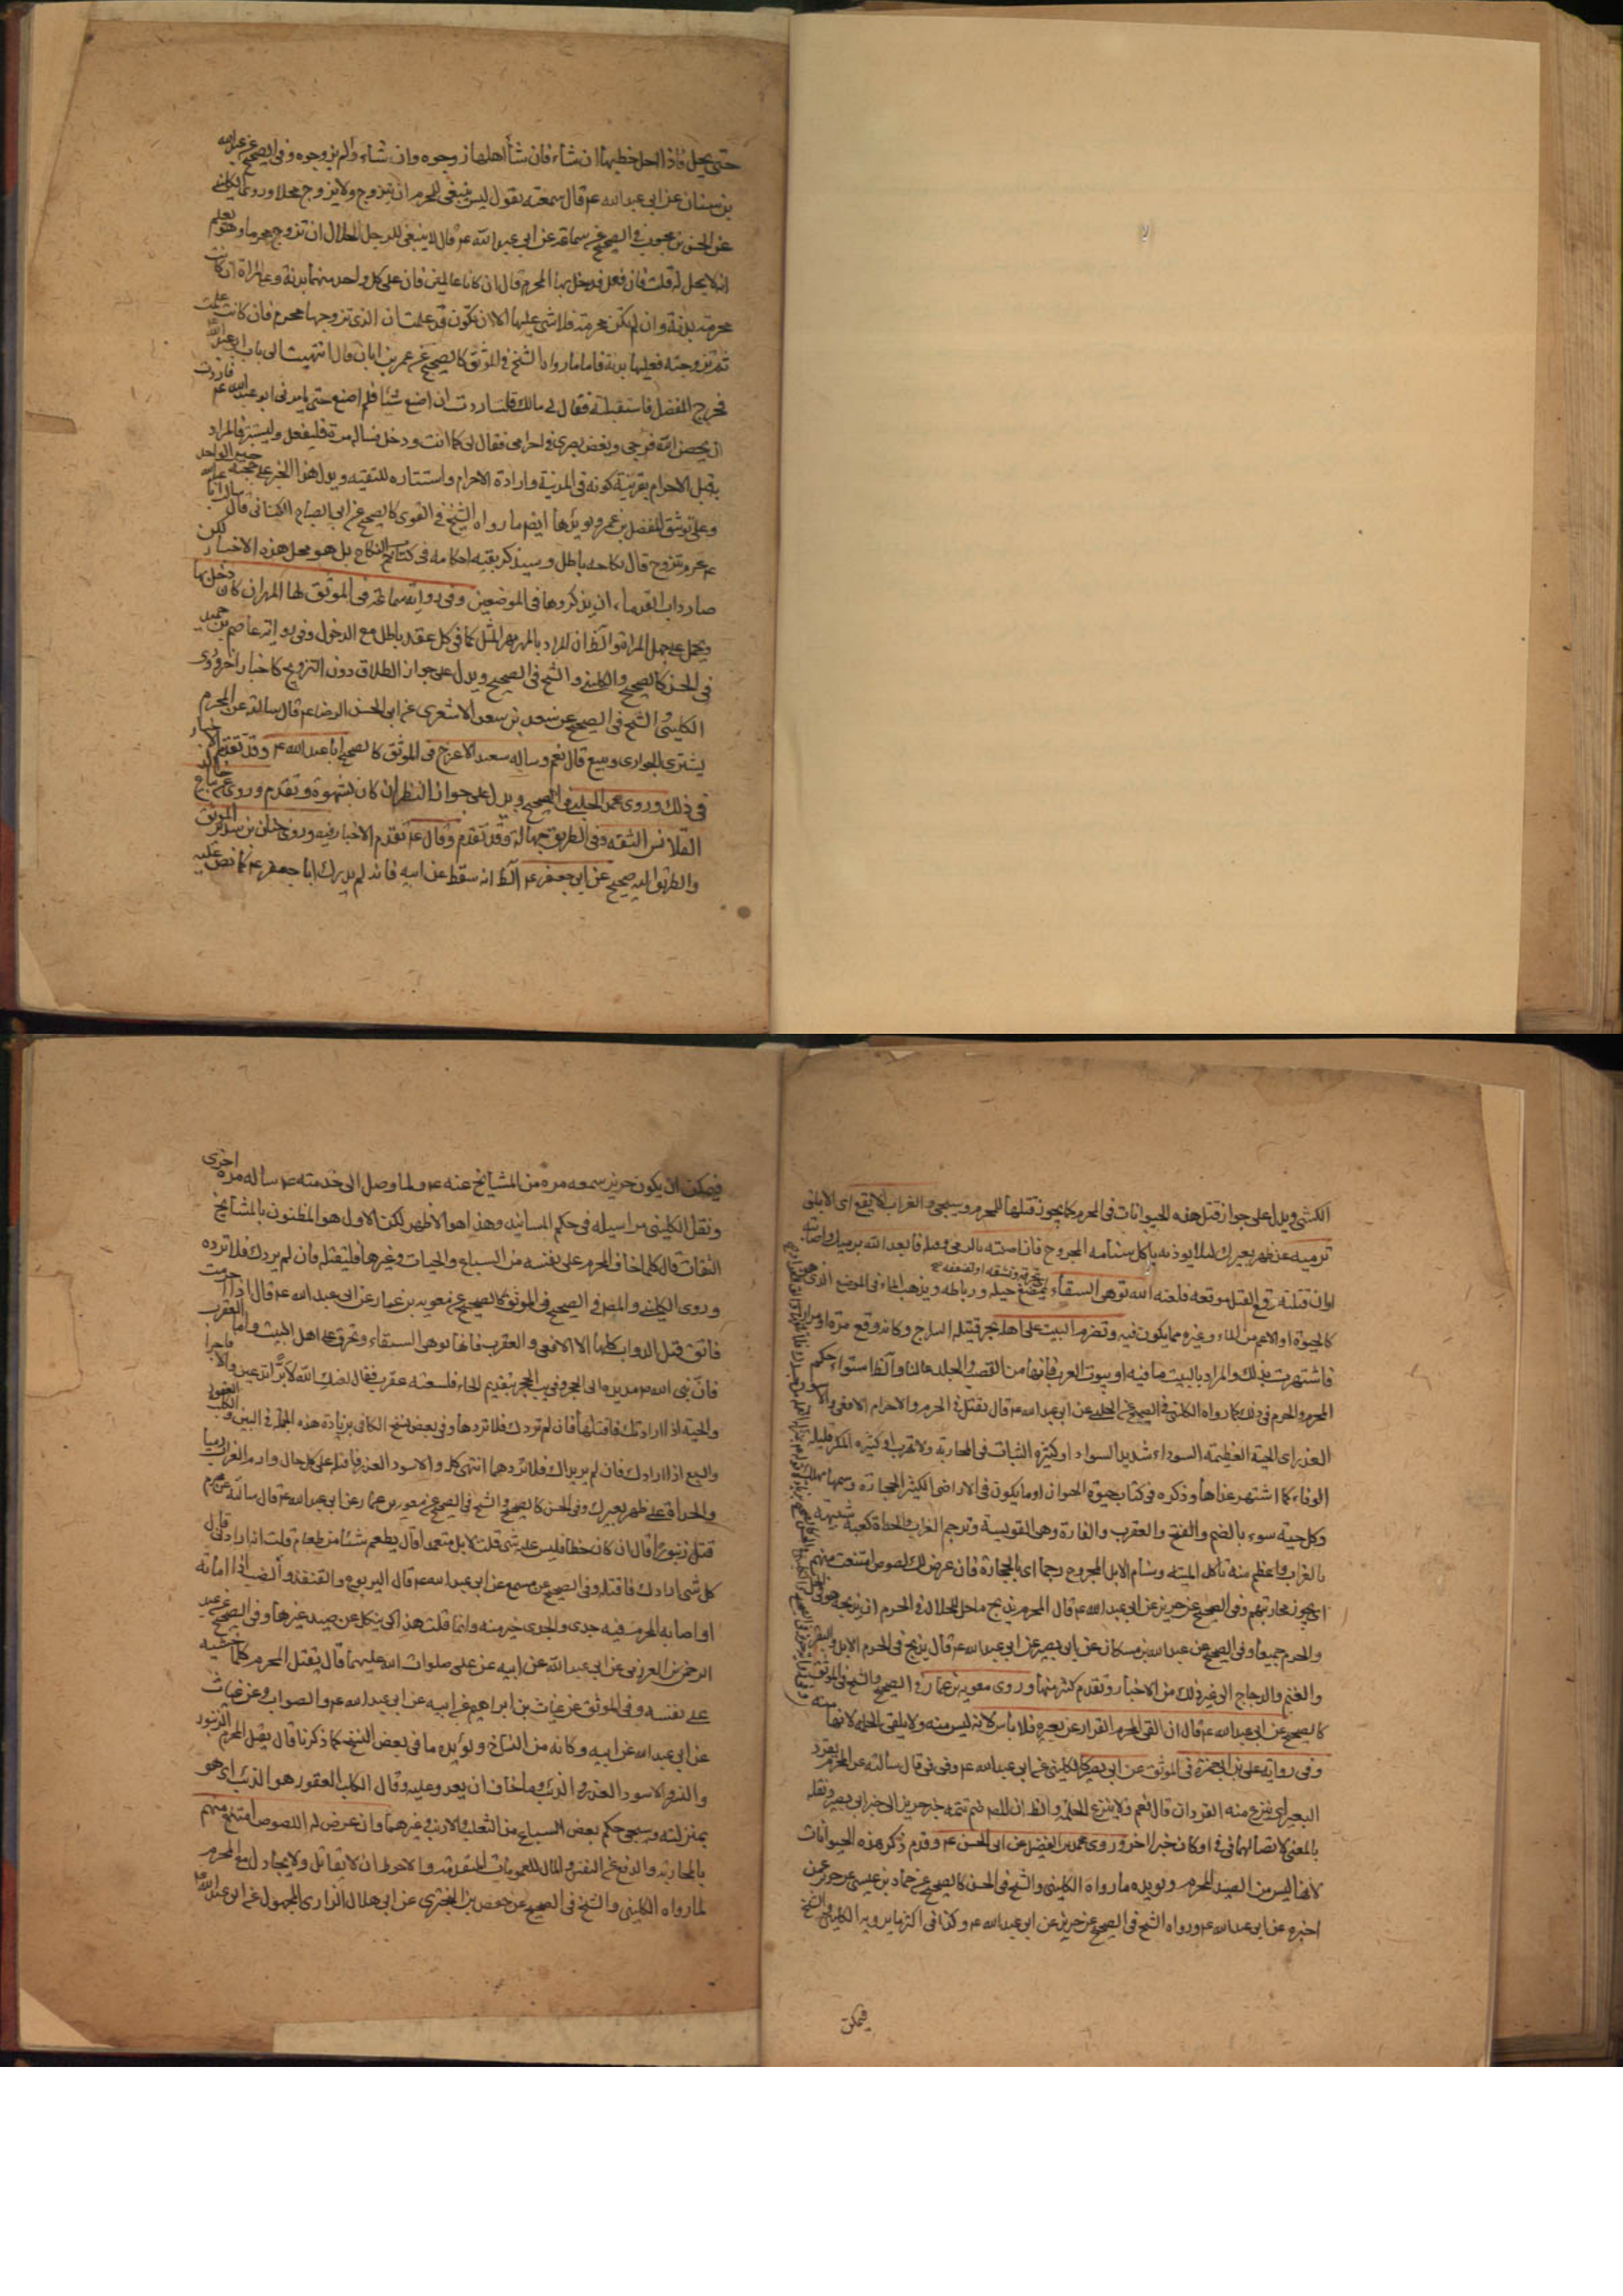 لا
حتى يحل فاذا احل خطبها ان شاء فان شاء اهلها زوجوه وان شاء والم يزوجوه وفى الصحيح عن عبد الله
بن سنان عن ابى عبد الله ع قال سمعته يقول ليس ينبغى للمحرم ان يتزوج ولا يزوج محلا وروى الكلينى
عن الحسن بن محبوب فى الصحيح عن سماعة عن ابى عبد الله ع قال لا ينبغى للرجل الحلال ان تزوج محرما وهو يعلم
انه لا يحل له قلت فان فعل فدخل بها المحرم قال ان كانا عالمين فان على كل واحد منهما بدنة وعلى المراة ان كانت
محرمة بدنة وان لم تكن محرمة فلا شى عليها الا ان تكون قد علمت ان الذى تزوجها محرم فان كانت علمت
ثم تزوجته فعليها بدنة فاما ما رواه الشيخ فى الموثق كالصحيح عن عمر بن ابان قال انتهيت الى باب ابى عبد الله
فخرج المفضل فاستقبلته فقال لى مالك قلت اردت ان اصنع شيئا فلم اصنع حتى يامرنى ابو عبد الله ع فاردت
ان يحصن الله فرجى ويغض بصرى فى احرامى فقال لى كما انت ودخل فساله مرة فليفعل وليستتر فالمراد
بقبل الاحرام بقرينة كونه فى المدينة وارادة الاحرام واستتاره للتقية ويدل هذا الخبر على حجية خبر الواحد
وعلى توثيق المفضل بن عمر ويؤيدها ايضا ما رواه الشيخ فى القوى كالصحيح عن ابى الصباح الكنانى قال سالت ابا عبد الله
ع عن محرم تزوج قال نكاحه باطل وسيذكر بقية احكامه فى كتاب النكاح بل هو محل هذه الاخبار لكن
صار داب القدماء ان يذكروها فى الموضعين وفى رواية سماعة فى الموثق لها المهر ان كان دخل بها
ويحمل على جهل المراة والظ ان المراد بالمهر مهر المثل كما فى كل عقد باطل مع الدخول وفى رواية عاصم بن حميد
فى الحسن كالصحيح والكلينى والشيخ فى الصحيح ويدل على جواز الطلاق دون التزويج كاخبار اخر وروى
الكلينى والشيخ فى الصحيح عن سعد بن سعد الاشعرى عن ابى الحسن الرضا ع قال سالته عن المحرم
يشترى الجوارى ويبيع قال نعم وساله سعيد الاعرج فى الموثق كالصحيح ابا عبد الله ع وقد تقدم الاخبار
فى ذلك وروى محمد الحلبى فى الصحيح ويدل على جواز النظر ان كان بشهوة وتقدم وروى عن خالد بياع
القلانس الثقة وفى الطريق جهالة وقد تقدم وقال ع تقدم الاخبار فيه وروى حنان بن سدير الموثق
والطريق اليه صحيح عن ابى جعفر ع الظ انه سقط عن ابيه فانه لم يدرك ابا جعفر ع كما نص عليه
الكشى ويدل على جواز قتل هذه الحيوانات فى الحرم كما يجوز قتلها للمحرم وسيجى والغراب الابقع اى الابلق
ترميه عن ظهر بعيرك لئلا يوذيه باكل سنامه المجروح فان اصبته بالرمى وقتله فابعده الله برميك واصابته
كالجبوة او الاعم من الماء وغيره مما يكون فيه وتضرم البيت على اهله بجر فتيلة السراج وكانه وقع مرة او مرارا
فاشتهرت بذلك والمراد بالبيت ما فيه او بيوت العرب فانها من القصب والجلد غالبا والظ استواء حكم
المحرم والحرم فى ذلك كما رواه الكلينى فى الصحيح عن الحلبى عن ابى عبد الله ع قال يقتل فى الحرم والاحرام الافعى والاسود
الغدر اى الحية العظيمة السوداء شديد السواد او كثيرة الثبات فى المحاربة ولا تهرب او كثيرة المكر قليلة
الوفاء كما اشتهر عنها وذكره فى كتاب حيوة الحيوان او ما يكون فى الاراضى الكثير الحجارة وسمها مهلك
وكل حية سوء بالضم والفتح والعقرب والفارة وهى الفويسقة وترجم الغراب والحداة كعنبة شبيهة
بالغراب واعظم منه تاكل الميتة وسنام الابل المجروح رجما اى بالحجارة فان عرض لك لصوص امتنعت منهم
اى يجوز محاربتهم وفى الصحيح عن حريز عن ابى عبد الله ع قال المحرم يذبح ما حل للحلال فى الحرم ان يذبحه هو فى الحل
والحرم جميعا وفى الصحيح عن عبد الله بن مسكان عن ابى بصير عن ابى عبد الله ع قال يذبح فى الحرم الابل والبقر
والغنم والدجاج الى غير ذلك من الاخبار وتقدم كثير منها وروى معوية بن عمار فى الصحيح والشيخ فى الموثق
كالصحيح عن ابى عبد الله ع قال ان القى المحرم القراد عن بعيره فلا باس لانه ليس منه ولا يلقى الحلمة لانها منه
وفى رواية على بن ابى حمزة فى الموثق عن ابى بصير كالكلينى عن ابى عبد الله ع وفى فى قال سالته عن المحرم يقرد
البعير اى ينزع منه القردان قال نعم ولا ينزع الحلمة والظ ان المص ضم تتمة خبر حريز الى خبر ابى بصير ونقله
بالمعنى لاتصالهما فى فى او كان خبرا اخر وروى محمد بن الفضيل عن ابى الحسن ع وقد تقدم ذكر هذه الحيوانات
لانها ليس من الصيد للمحرم ويؤيده ما رواه الكلينى والشيخ فى الحسن كالصحيح عن حماد بن عيسى عن حريز عمن
اخبره عن ابى عبد الله ع ورواه الشيخ فى الصحيح عن حريز عن ابى عبد الله ع وكذا فى اكثر ما يرويه الكلينى والشيخ
فيمكن
فيمكن ان يكون حريز سمعه مرة من المشايخ عنه ع ولما وصل الى خدمته ع ساله مرة اخرى
ونقل الكلينى مراسيله فى حكم المسانيد وهذا هو الاظهر لكن الاول هو المظنون بالمشايخ
الثقات قال كلما خاف المحرم على نفسه من السباع والحيات وغيرها فليقتله فان لم يردك فلا ترده
وروى الكلينى والمص فى الصحيح فى الموثق كالصحيح عن معوية بن عمار عن ابى عبد الله ع قال اذا احرمت
فاتق قتل الدواب كلها الا الافعى والعقرب والفارة فانها توهى السقاء وتحرق على اهل البيت واما العقرب
فان نبى الله ص مد يده الى الحجر فلسعته عقرب فقال لعنك الله لا برا تدعين ولا فاجرا
والحية اذا ارادتك فاقتلها فان لم تردك فلا تردها وفى بعض نسخ الكافى بزيادة هذه الجملة فى البين والكلب العقور
والسبع اذا ارادك فان لم يريداك فلا تردهما انتهى كلم والاسود الغدر فاقتله على كل حال وارم الغراب رميا
والحداة على ظهر بعيرك وفى الحسن كالصحيح والشيخ فى الصحيح عن معوية بن عمار عن ابى عبد الله ع قال سالته عن محرم
قتل زنبورا قال ان كان خطا فليس عليه شى قلت لا بل متعمدا قال يطعم شيئا من طعام قلت انه ارادنى قال
كل شى ارادك فاقتله وفى الصحيح عن مسمع عن ابى عبد الله ع قال اليربوع والقنفذ والضب اذا اماته
او اصابه المحرم فيه جدى والجدى خير منه وانما قلت هذا كى ينكل عن صيد غيرها وفى الصحيح عن عبد
الرحمن بن العرزمى عن ابى عبد الله عن ابيه عن على صلوات الله عليهما قال يقتل المحرم كلما خشيه
على نفسه وفى الموثق عن غياث بن ابراهيم عن ابيه عن ابى عبد الله ع والصواب وعن غياث
عن ابى عبد الله عن ابيه وكانه من النساخ ويؤيده ما فى بعض النسخ كما ذكرنا قال يقتل المحرم الزنبور
والنسر والاسود الغدر والذئب وما خاف ان يعدو عليه وقال الكلب العقور هو الذئب اى هو
بمنزلته وسيجى حكم بعض السباع من الثعلب والارنب وغيرهما وان عرض له اللصوص امتنع منهم
بالمحاربة والدفع عن النفس والمال للعمومات المتقدمة والاحوط ان لا يقاتل ولا يجادل مع المحرم
لما رواه الكلينى والشيخ فى الصحيح عن حفص بن البخترى عن ابى هلال الرازى المجهول عن ابى عبد الله ع